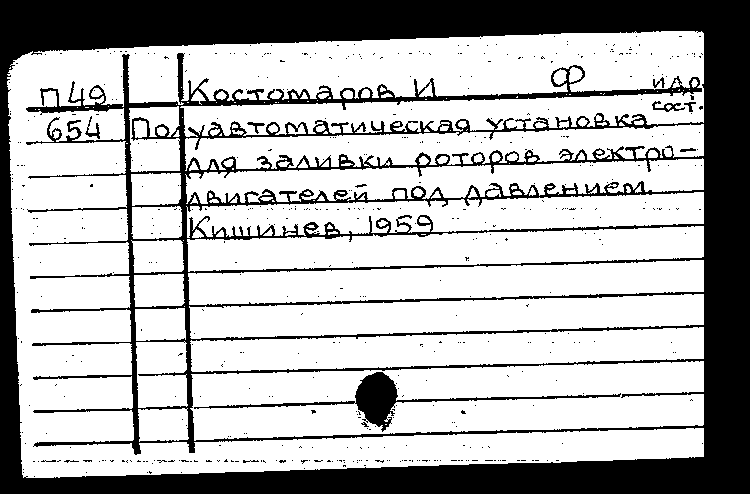 П49 Костомаров, И Ф и др.
сост.
654 Полуавтоматическая установка
для заливки роторов электро-
двигателей под давлением.
Кишинев, 1959